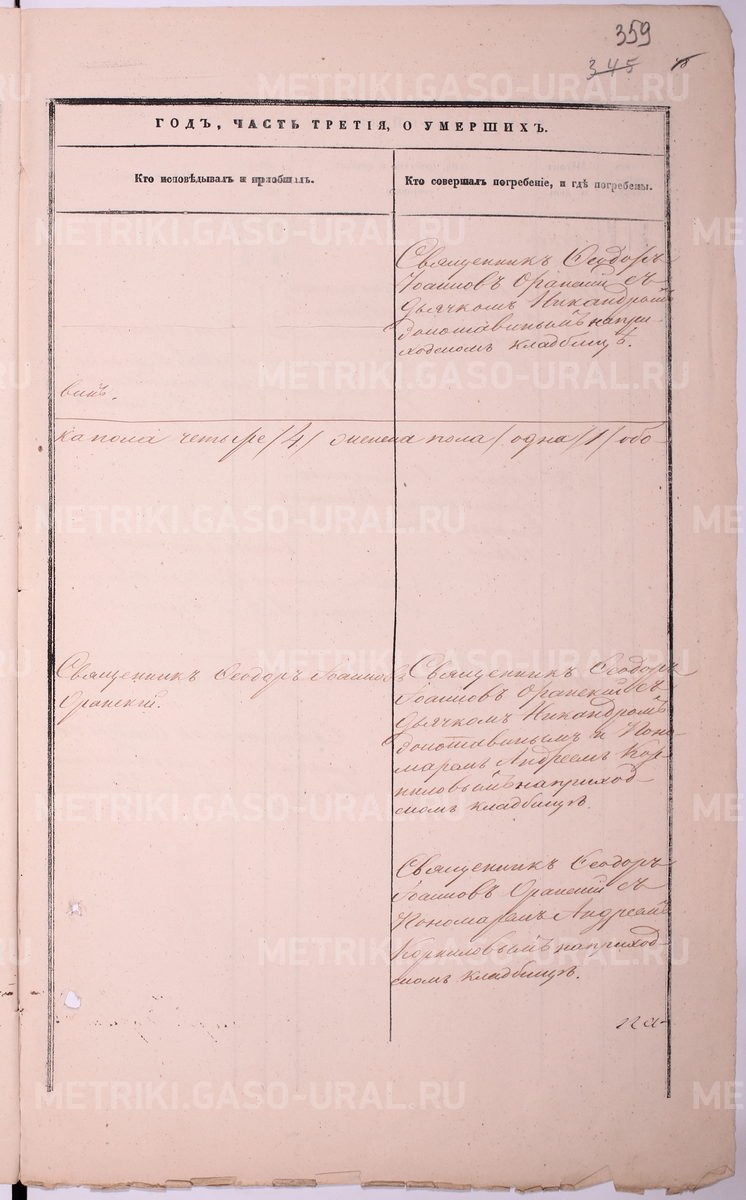 359
345
ГОДЪ, ЧАСТЬ ТРЕТІЯ, О УМЕРШИХЪ.
Кто исповѣдывалъ и пріобщалъ.
Кто совершалъ погребеніе, и гдѣ погребены.
Священникъ Ѳеодоръ
Іоанновъ Оранскій съ
Дьячкомъ Никандромъ
Золотавинымъ на при
ходскомъ кладбищѣ.
викъ.
ка пола четыре /4/ женска пола / одна /1/ обо-
Священникъ Ѳеодоръ Іоанновъ
Оранскій.
Священникъ Ѳеодоръ
Іоанновъ Оранскій съ
Дьячкомъ Никандромъ
Золотавинымъ и Поно
маремъ Андреемъ Кор
ниловымъ на приход
скомъ кладбищѣ.
Священникъ Ѳеодоръ
Іоанновъ Оранскій съ
Пономаремъ Андреемъ
Корниловымъ на приход-
скомъ кладбищѣ.
па-
METRIKI.GASO-URAL.RU